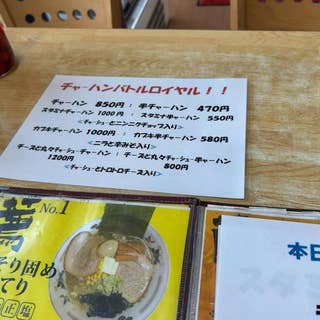 チャーハンバトルロイヤル！！
チャーハン 850円 : 半チャーハン 470円
スタミナチャーハン 1000円 : スタミナ半チャーハン 550円
<チャーシューとニンニクチョップ入り>
カブキチャーハン 1000円 : カブキ半チャーハン 580円
<ニラと辛みそ入り>
チーズと丸々チャーシューチャーハン : チーズと丸々チャーシュー半チャーハン
1200円 800円
<チャーシューとトロトロチーズ入り>
No.1
そり固め
てり
正 塩
本日